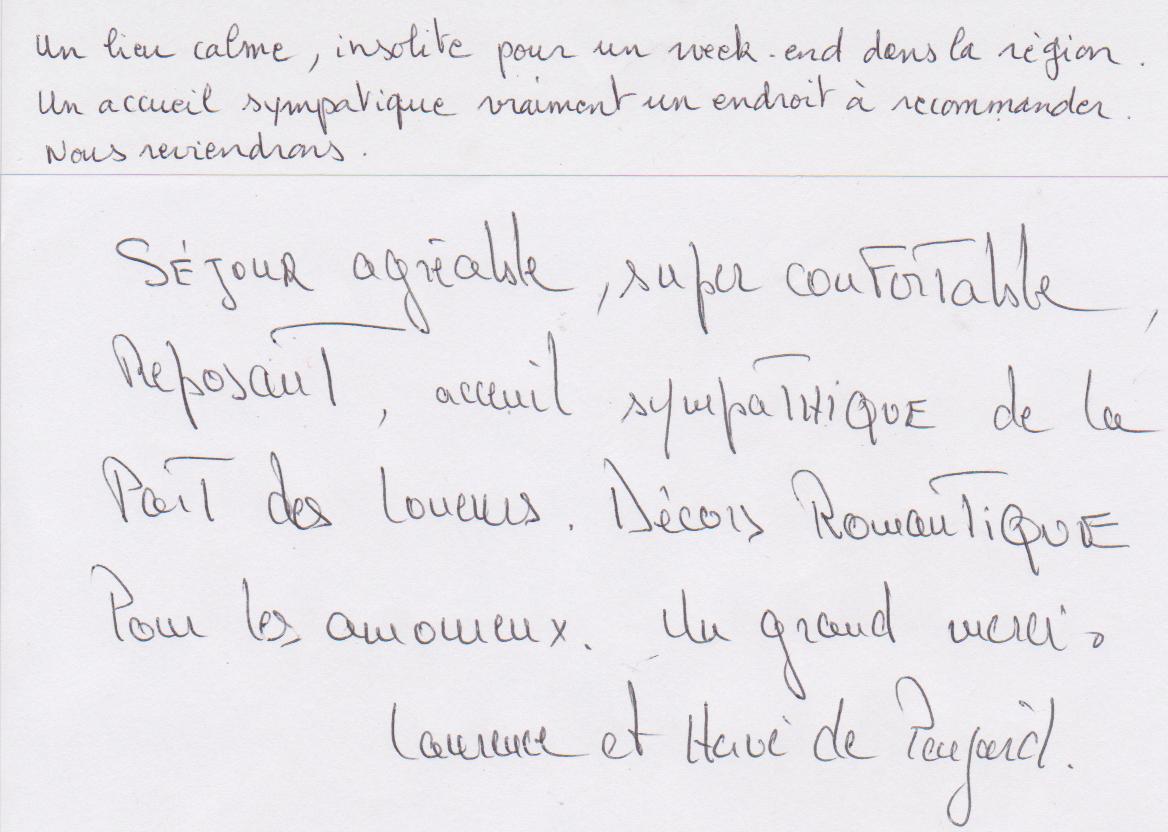 Un lieu calme, insolite pour un week-end dans la région.
Un accueil sympatique vraiment un endroit à recommander.
Nous reviendrons.
SÉJOUR agréable, super confortable,
Reposant, acceuil sympathiQUE de la
Part des loueurs. Décors RomantiQUE
Pour les amoureux. Un grand merci.
Laurence et Hervé de